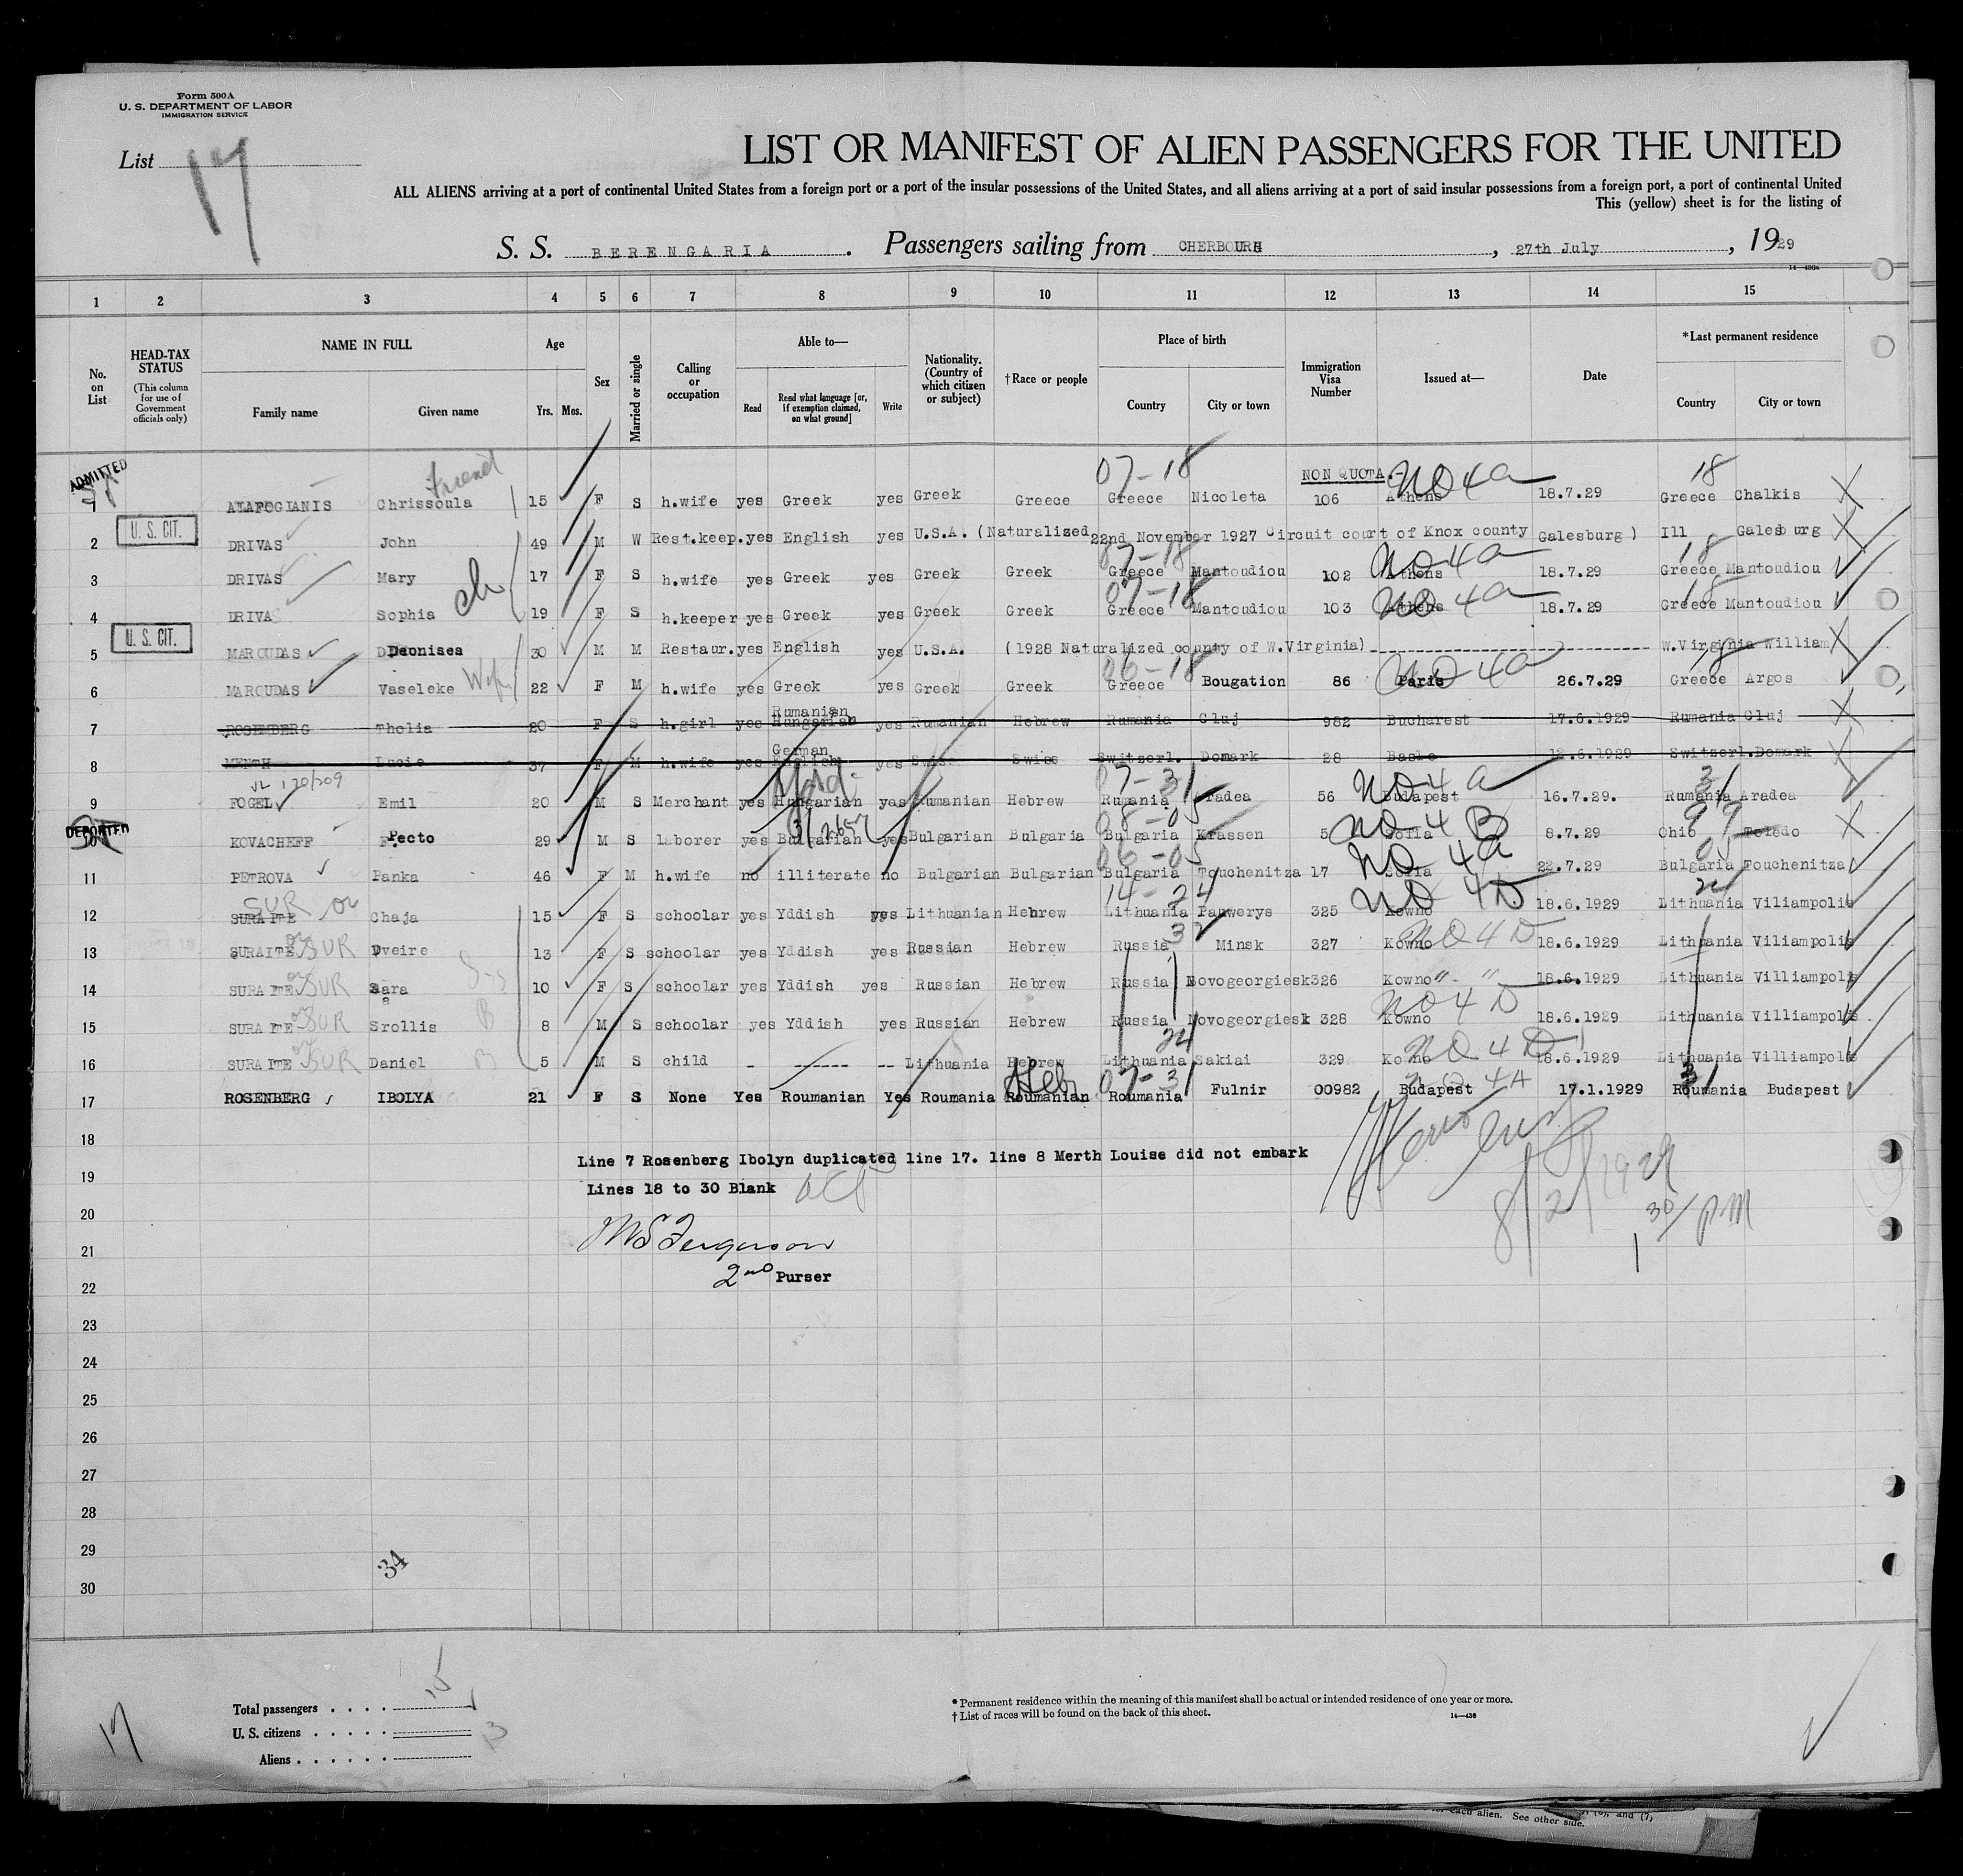 Form 500A
U. S. DEPARTMENT OF LABOR
IMMIGRATION SERVICE
List 17
LIST OR MANIFEST OF ALIEN PASSENGERS FOR THE UNITED
ALL ALIENS arriving at a port of continental United States from a foreign port or a port of the insular possessions of the United States, and all aliens arriving at a port of said insular possessions from a foreign port, a port of continental United
This (yellow) sheet is for the listing of
S. S. BERENGARIA. Passengers sailing from CHERBOURG, 27th July, 1929
14—430a
1 2 3 4 5 6 7 8 9 10 11 12 13 14 15
No. on List
HEAD-TAX STATUS (This column for use of Government officials only)
NAME IN FULL Family name Given name
Age Yrs. Mos.
Sex
Married or single
Calling or occupation
Able to— Read Read what language [or, if exemption claimed, on what ground] Write
Nationality. (Country of which citizen or subject)
†Race or people
Place of birth Country City or town
Immigration Visa Number
Issued at—
Date
*Last permanent residence Country City or town
ADMITTED Friend 07-18 NON QUOTA NO 4a 18
1 ALAFOGIANIS Chrissoula 15 F S h.wife yes Greek yes Greek Greece Greece Nicoleta 106 Athens 18.7.29 Greece Chalkis
U. S. CIT.
2 DRIVAS John 49 M W Rest.keep. yes English yes U.S.A. (Naturalized 22nd November 1927 Circuit court of Knox county Galesburg) Ill Galesburg
07-18 NO 4a 18
3 DRIVAS Mary 17 F S h.wife yes Greek yes Greek Greek Greece Mantoudiou 102 Athens 18.7.29 Greece Mantoudiou
ch 07-18 NO 4a 18
4 DRIVAS Sophia 19 F S h.keeper yes Greek yes Greek Greek Greece Mantoudiou 103 Athens 18.7.29 Greece Mantoudiou
U. S. CIT.
5 MAROUDAS Deonises 30 M M Restaur. yes English yes U.S.A. (1928 Naturalized county of W.Virginia) W.Virginia William
Wife 06-18 NO 4a 18
6 MAROUDAS Vaseleke 22 F M h.wife yes Greek yes Greek Greek Greece Bougation 86 Paris 26.7.29 Greece Argos
7 ROSEMBERG Tholia 20 F S h.girl yes Rumanian Hungarian yes Rumanian Hebrew Rumania Cluj 982 Bucharest 17.6.1929 Rumania Cluj
8 MENTH Lucie 37 F M h.wife yes German English yes Swiss Swiss Switzerl. Domark 28 Basle 12.6.1929 Switzerl. Domark
VL 120/209 07-31 NO 4a 31
9 FOGEL Emil 20 M S Merchant yes Hungarian yes Rumanian Hebrew Rumania Aradea 56 Budapest 16.7.29. Rumania Aradea
DEPORTED 08-05 NO 4B 99
10 KOVACHEFF Pecto 29 M S laborer yes Bulgarian yes Bulgarian Bulgaria Bulgaria Krassen 5 Sofia 8.7.29 Ohio Toledo
06-05 NO 4a 05
11 PETROVA Panka 46 F M h.wife no illiterate no Bulgarian Bulgarian Bulgaria Touchenitza 17 Sofia 22.7.29 Bulgaria Touchenitza
SUR or 14-24 NO 4D 24
12 SURAITE Chaja 15 F S schoolar yes Yddish yes Lithuanian Hebrew Lithuania Pauwerys 325 Kowno 18.6.1929 Lithuania Viliampolis
13 SURAITE or SUR Dveire 13 F S schoolar yes Yddish yes Russian Hebrew Russia 32 Minsk 327 Kowno NO 4D 18.6.1929 Lithuania Viliampolis
14 SURAITE or SUR Sara 10 F S schoolar yes Yddish yes Russian Hebrew Russia Novogeorgiesk 326 Kowno " - " 18.6.1929 Lithuania Villiampolis
15 SURAITE or SUR Srollis B 8 M S schoolar yes Yddish yes Russian Hebrew Russia Novogeorgiesk 328 Kowno NO 4D 18.6.1929 Lithuania Villiampolis
16 SURAITE or SUR Daniel B 5 M S child - ------ -- Lithuania Hebrew Lithuania 24 Sakiai 329 Kowno NO 4D 18.6.1929 Lithuania Villiampolis
Heb 07-31 NO 4A 31
17 ROSENBERG IBOLYA 21 F S None Yes Roumanian Yes Roumania Roumanian Roumania Fulnir 00982 Budapest 17.1.1929 Roumania Budapest
18
Line 7 Rosenberg Ibolyn duplicated line 17. line 8 Merth Louise did not embark
19
Lines 18 to 30 Blank
8/2/1929
1 30/PM
20
21
Ferguson
2nd Purser
22
23
24
25
26
27
28
29
34
30
Total passengers . . . . 15
U. S. citizens . . . . .
Aliens . . . . . .
17
* Permanent residence within the meaning of this manifest shall be actual or intended residence of one year or more.
† List of races will be found on the back of this sheet.
14—430
each alien. See other side.